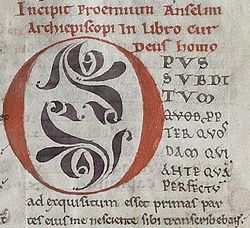 Incipit Proemium Anselmi
Archiepiscopi In Libro Cur
Deus homo
OPUS
SUBDI
TUM
QUOD, PP
TER QUOS
DAM QUI
ANTE QUA
PERFECTU
ad exquisitum esset primas par
tes eius me nesciente sibi transcribebant.